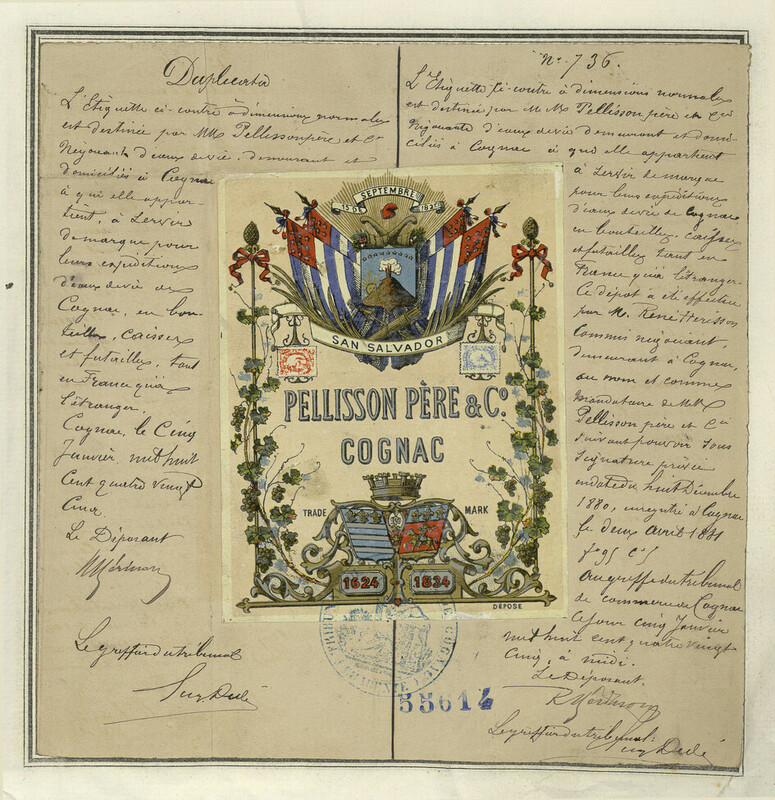 Duplicata
L'Etiquette ci-contre à dimensions normales
est destinée par MM. Pellisson père et Cie
Négociants d'eaux de vie, demeurant et
domiciliés à Cognac
à qui elle appar-
tient, à servir
de marque pour
leurs expéditions
d'eaux de vie de
Cognac, en bou-
teilles, caisses
et futailles, tant
en France qu'à
l'étranger.
Cognac, le Cinq
Janvier mil huit
Cent quatre vingt
Cinq.
Le Déposant
Le greffier du tribunal
No. 736.
L'Etiquette ci-contre à dimensions normales
est destinée par MM. Pellisson père et Cie
Négociants d'eaux de vie demeurant et domi-
ciliés à Cognac à qui elle appartient
à servir de marque
pour leurs expéditions
d'eaux de vie de Cognac
en bouteilles, caisses
et futailles tant en
France qu'à l'étranger
Ce dépôt a été effectué
par M. René Hérisson
Commis négociant,
demeurant à Cognac,
au nom et comme
mandataire de MM.
Pellisson père et Cie
suivant pouvoir sous
signature privée
en date du huit Décembre
1880, enregistré à Cognac
le deux Avril 1881
fo 95 Co 5
Au greffe du tribunal
de commerce de Cognac
ce jour cinq Janvier
mil huit cent quatre vingt
Cinq, à midi.
Le Déposant.
Le greffier du tribunal
SEPTEMBRE
15 DE
1821
SAN SALVADOR
PELLISSON PÈRE & Co.
COGNAC
TRADE MARK
1624 1834
DÉPOSÉ
55614